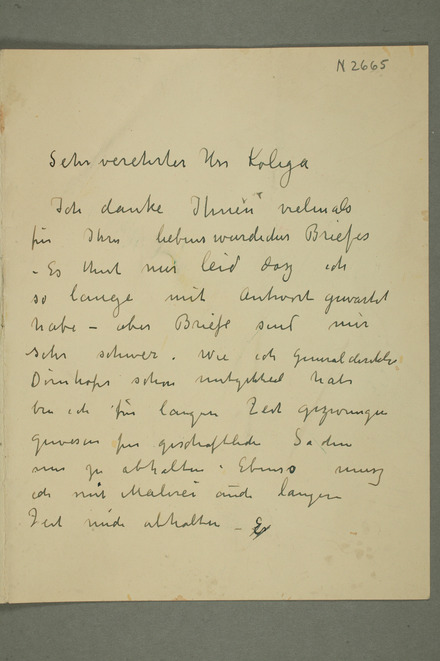 N 2665
Sehr verehrter Herr Kolega
Ich danke Ihnen vielmals
für Ihren liebenswürdiches Briefes
- Es thut mir leid dasz ich
so lange mit Antwort gewartet
habe - aber Briefe sind mir
sehr schwer. Wie ich Generaldirektor
Dörnhöfer schon mitgeteilt habe
bin ich für langen Zeit gezwungen
gewesen für geschäftliche Sachen
mir zu abhalten. Ebenso musz
ich mit Malerei auch langere
Zeit mich abhalten -